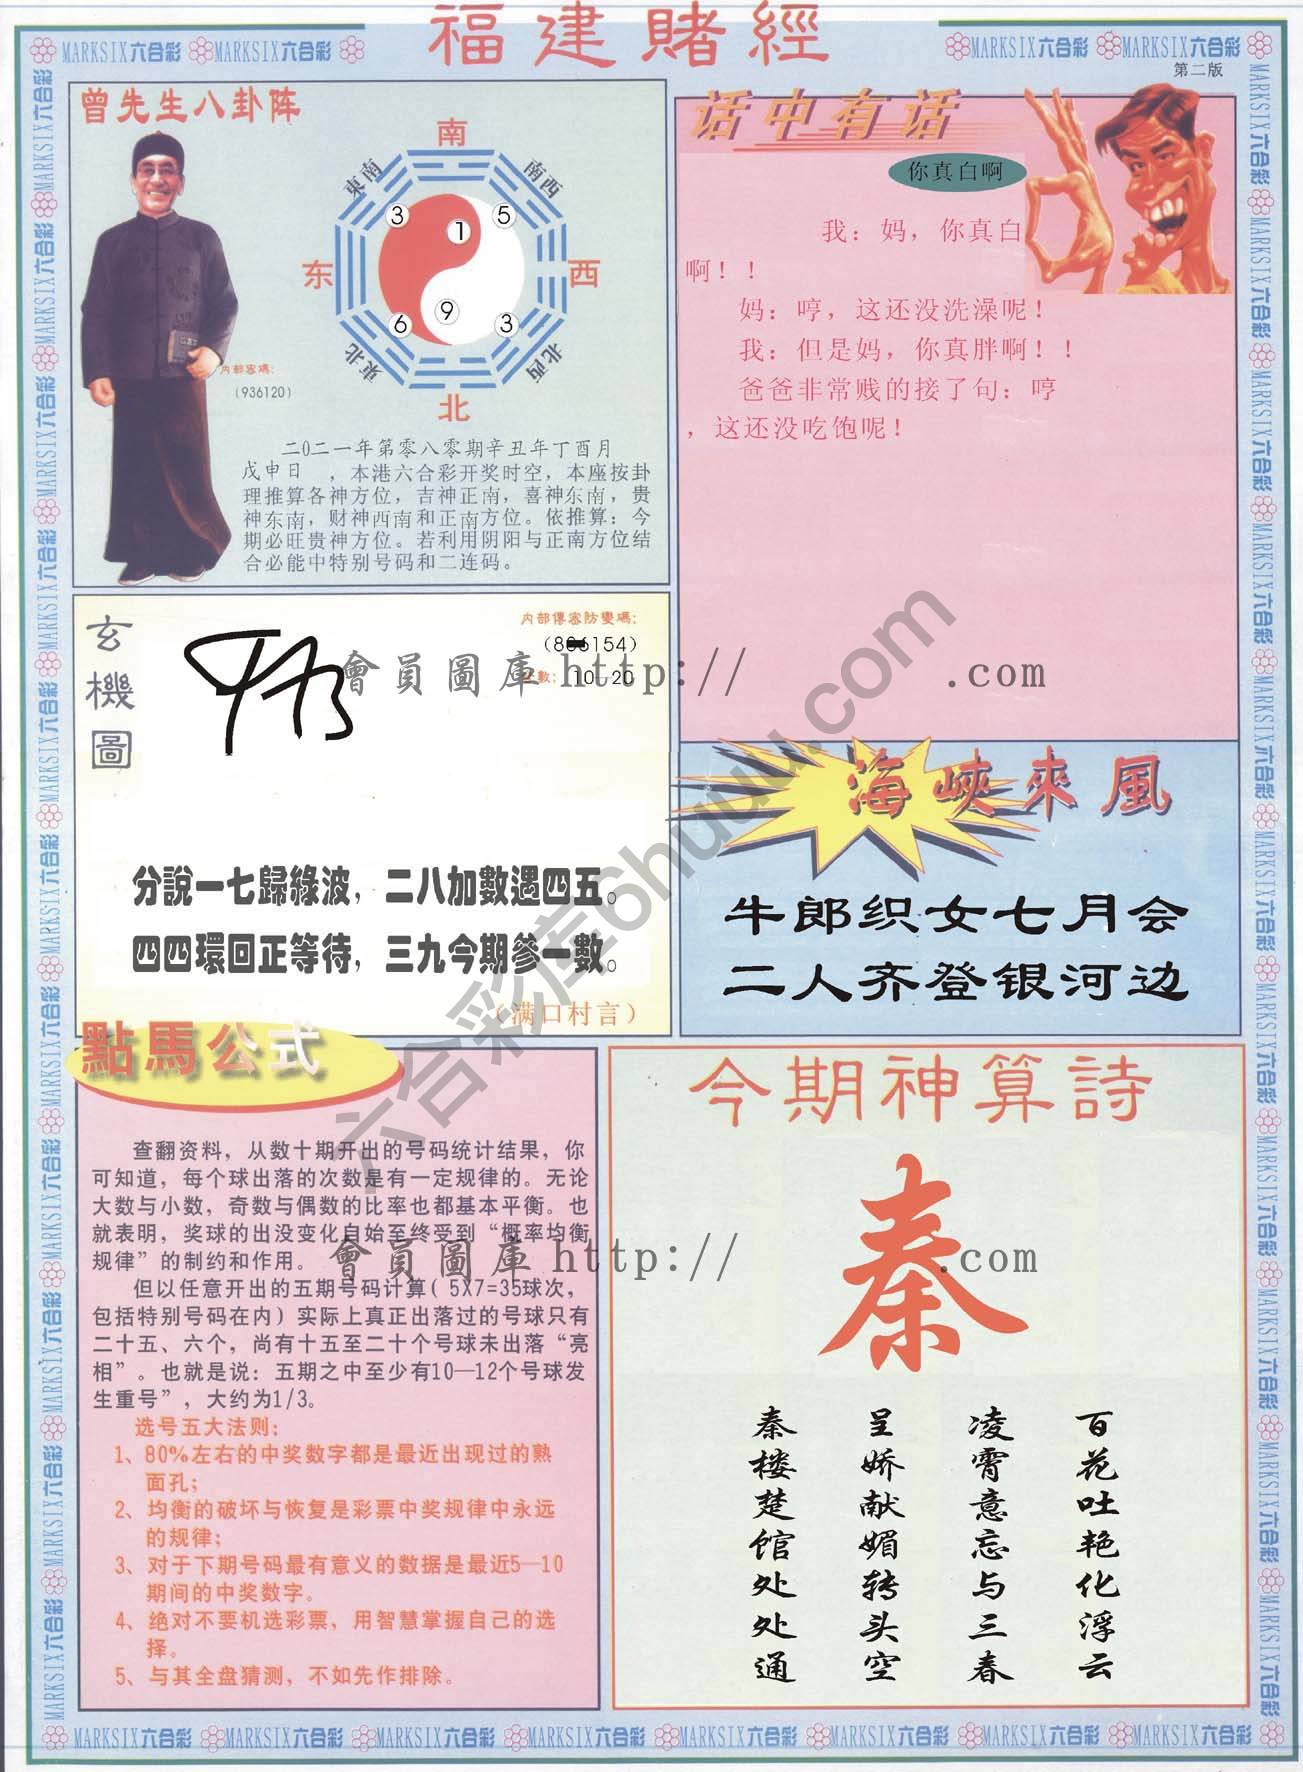 福建賭經
MARKSIX六合彩 MARKSIX六合彩
MARKSIX六合彩 MARKSIX六合彩
第二版
曾先生八卦阵
南
東南
南西
3
5
1
东
西
9
6
3
東北
北西
北
内部密碼：
（936120）
二0二一年第零八零期辛丑年丁酉月
戊申日　，本港六合彩开奖时空，本座按卦
理推算各神方位，吉神正南，喜神东南，贵
神东南，财神西南和正南方位。依推算：今
期必旺贵神方位。若利用阴阳与正南方位结
合必能中特别号码和二连码。
话中有话
你真白啊
我：妈，你真白
啊！！
妈：哼，这还没洗澡呢！
我：但是妈，你真胖啊！！
爸爸非常贱的接了句：哼
，这还没吃饱呢！
玄機圖
内部傳密防變碼：
154）
數：10-20
會員圖庫 http:// .com
分說一七歸綠波，二八加數遇四五。
四四環回正等待，三九今期參一數。
（满口村言）
海峽來風
牛郎织女七月会
二人齐登银河边
六合彩库6huuu.com
點馬公式
查翻资料，从数十期开出的号码统计结果，你
可知道，每个球出落的次数是有一定规律的。无论
大数与小数，奇数与偶数的比率也都基本平衡。也
就表明，奖球的出没变化自始至终受到“概率均衡
规律”的制约和作用。
但以任意开出的五期号码计算（5X7=35球次，
包括特别号码在内）实际上真正出落过的号球只有
二十五、六个，尚有十五至二十个号球未出落“亮
相”。也就是说：五期之中至少有10—12个号球发
生重号”，大约为1/3。
选号五大法则：
1、80%左右的中奖数字都是最近出现过的熟
面孔；
2、均衡的破坏与恢复是彩票中奖规律中永远
的规律；
3、对于下期号码最有意义的数据是最近5—10
期间的中奖数字。
4、绝对不要机选彩票，用智慧掌握自己的选
择。
5、与其全盘猜测，不如先作排除。
會員圖庫 http:// .com
今期神算詩
秦
秦楼楚馆处处通
呈娇献媚转头空
凌霄意忘与三春
百花吐艳化浮云
MARKSIX六合彩 MARKSIX六合彩 MARKSIX六合彩 MARKSIX六合彩 MARKSIX六合彩 MARKSIX六合彩 MARKSIX六合彩 MARKSIX六合彩